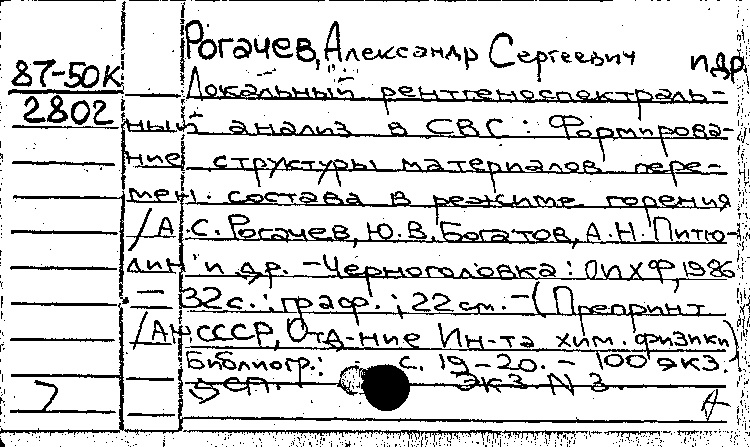 Рогачев, Александр Сергеевич пдр
87-50К
2802
Локальный рентгеноспектраль-
ный анализ в СВС: Формирова-
ние структуры материалов пере-
мен. состава в режиме горения
/А.С. Рогачев, Ю.В. Богатов, А.Н. Питю-
лин и др. - Черноголовка: ОИХФ, 1986
— 32 с.: граф.; 22 см. - (Препринт
/АН СССР, Отд-ние Ин-та хим. физики)
Библиогр.: с. 19-20. - 100 экз.
Экз. N 3.